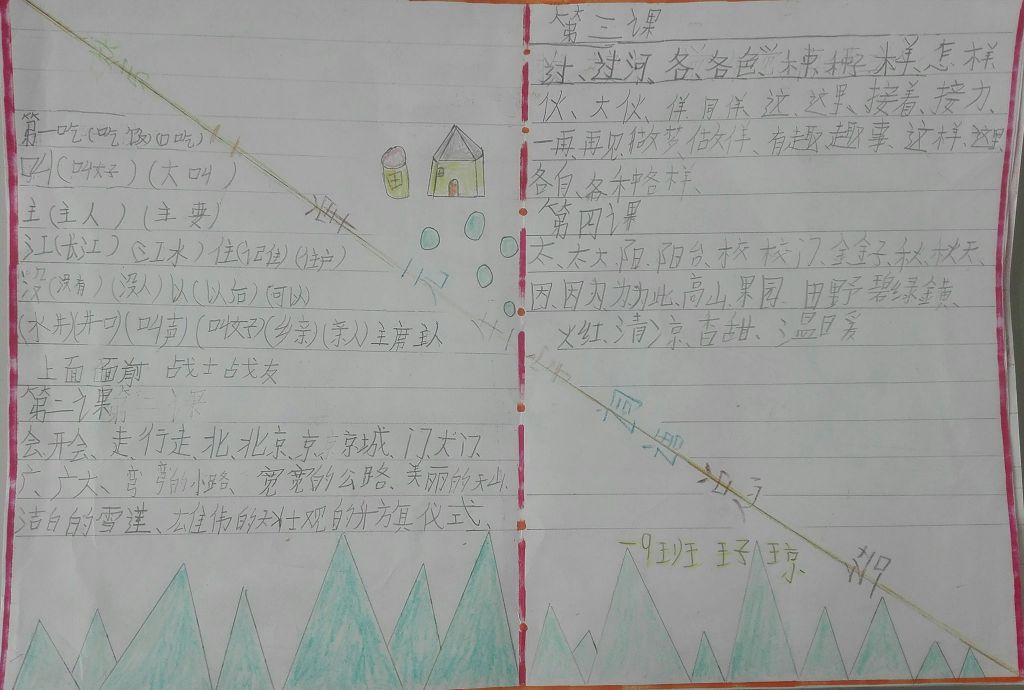 第一吃(吃饭)(口吃)
叫(叫太子)(大叫)
主(主人)(主要)
江(长江)(江水)住(记住)(住户)
没(没有)(没人)以(以后)(可以)
(水井)(井口)(叫声)(叫女子)(乡亲)(亲人)主席主人
上面 面前 战士战友
第二课
会、开会、走、行走、北、北京、京、京城、门、大门、
广、广大、弯弯的小路、宽宽的公路、美丽的天山、
洁白的雪莲、雄伟的 壮观的升旗仪式、
第三课
过、过河、各、各色、种子、样、怎样
伙、大伙、伴、同伴、这、这里、接着、接力、
一再、再见、做梦、做伴、有趣、趣事、这样、这里
各自、各种各样、
第四课
太、太太、阳、阳台、校、校门、金、金子、秋、秋天、
因、因为、为、为此、高山、果园、田野、碧绿
火红、清凉、香甜、温暖
一9班 王子琼